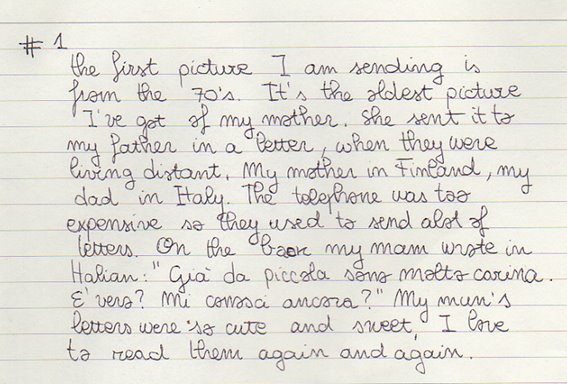 # 1
the first picture I am sending is
from the 70's. It's the oldest picture
I've got of my mother. She sent it to
my father in a letter, when they were
living distant. My mother in Finland, my
dad in Italy. The telephone was too
expensive so they used to send alot of
letters. On the back my mam wrote in
Italian: "Già da piccola sono molto carina.
E' vero? Mi conosci ancora?" My mum's
letters were so cute and sweet, I love
to read them again and again.